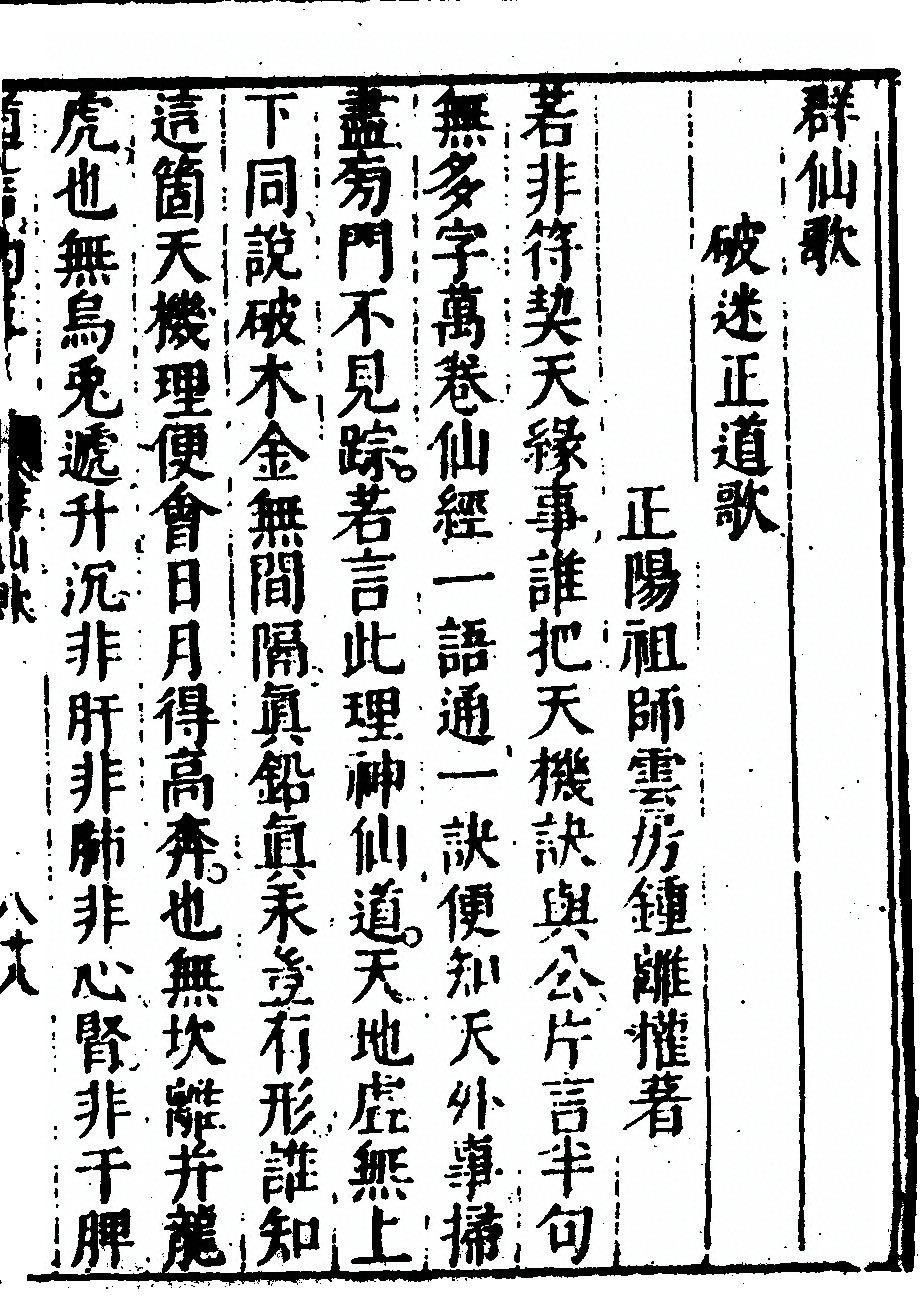 群仙歌
破迷正道歌
正陽祖師雲房鍾離權著
若非符契天緣事誰把天機訣與公片言半句
無多字萬卷仙經一語通一訣便知天外事掃
盡旁門不見踪。若言此理神仙道。天地虛無上
下同說破木金無間隔真鉛真汞豈有形誰知
這箇天機理便會日月得高奔。也無坎離并龍
虎也無烏兎遞升沉非肝非肺非心腎非干脾
八十八